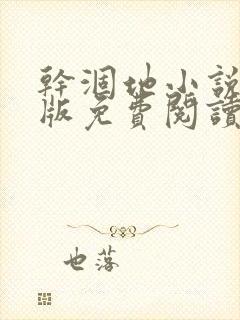 幹涸地小說
版免費閱讀
也落